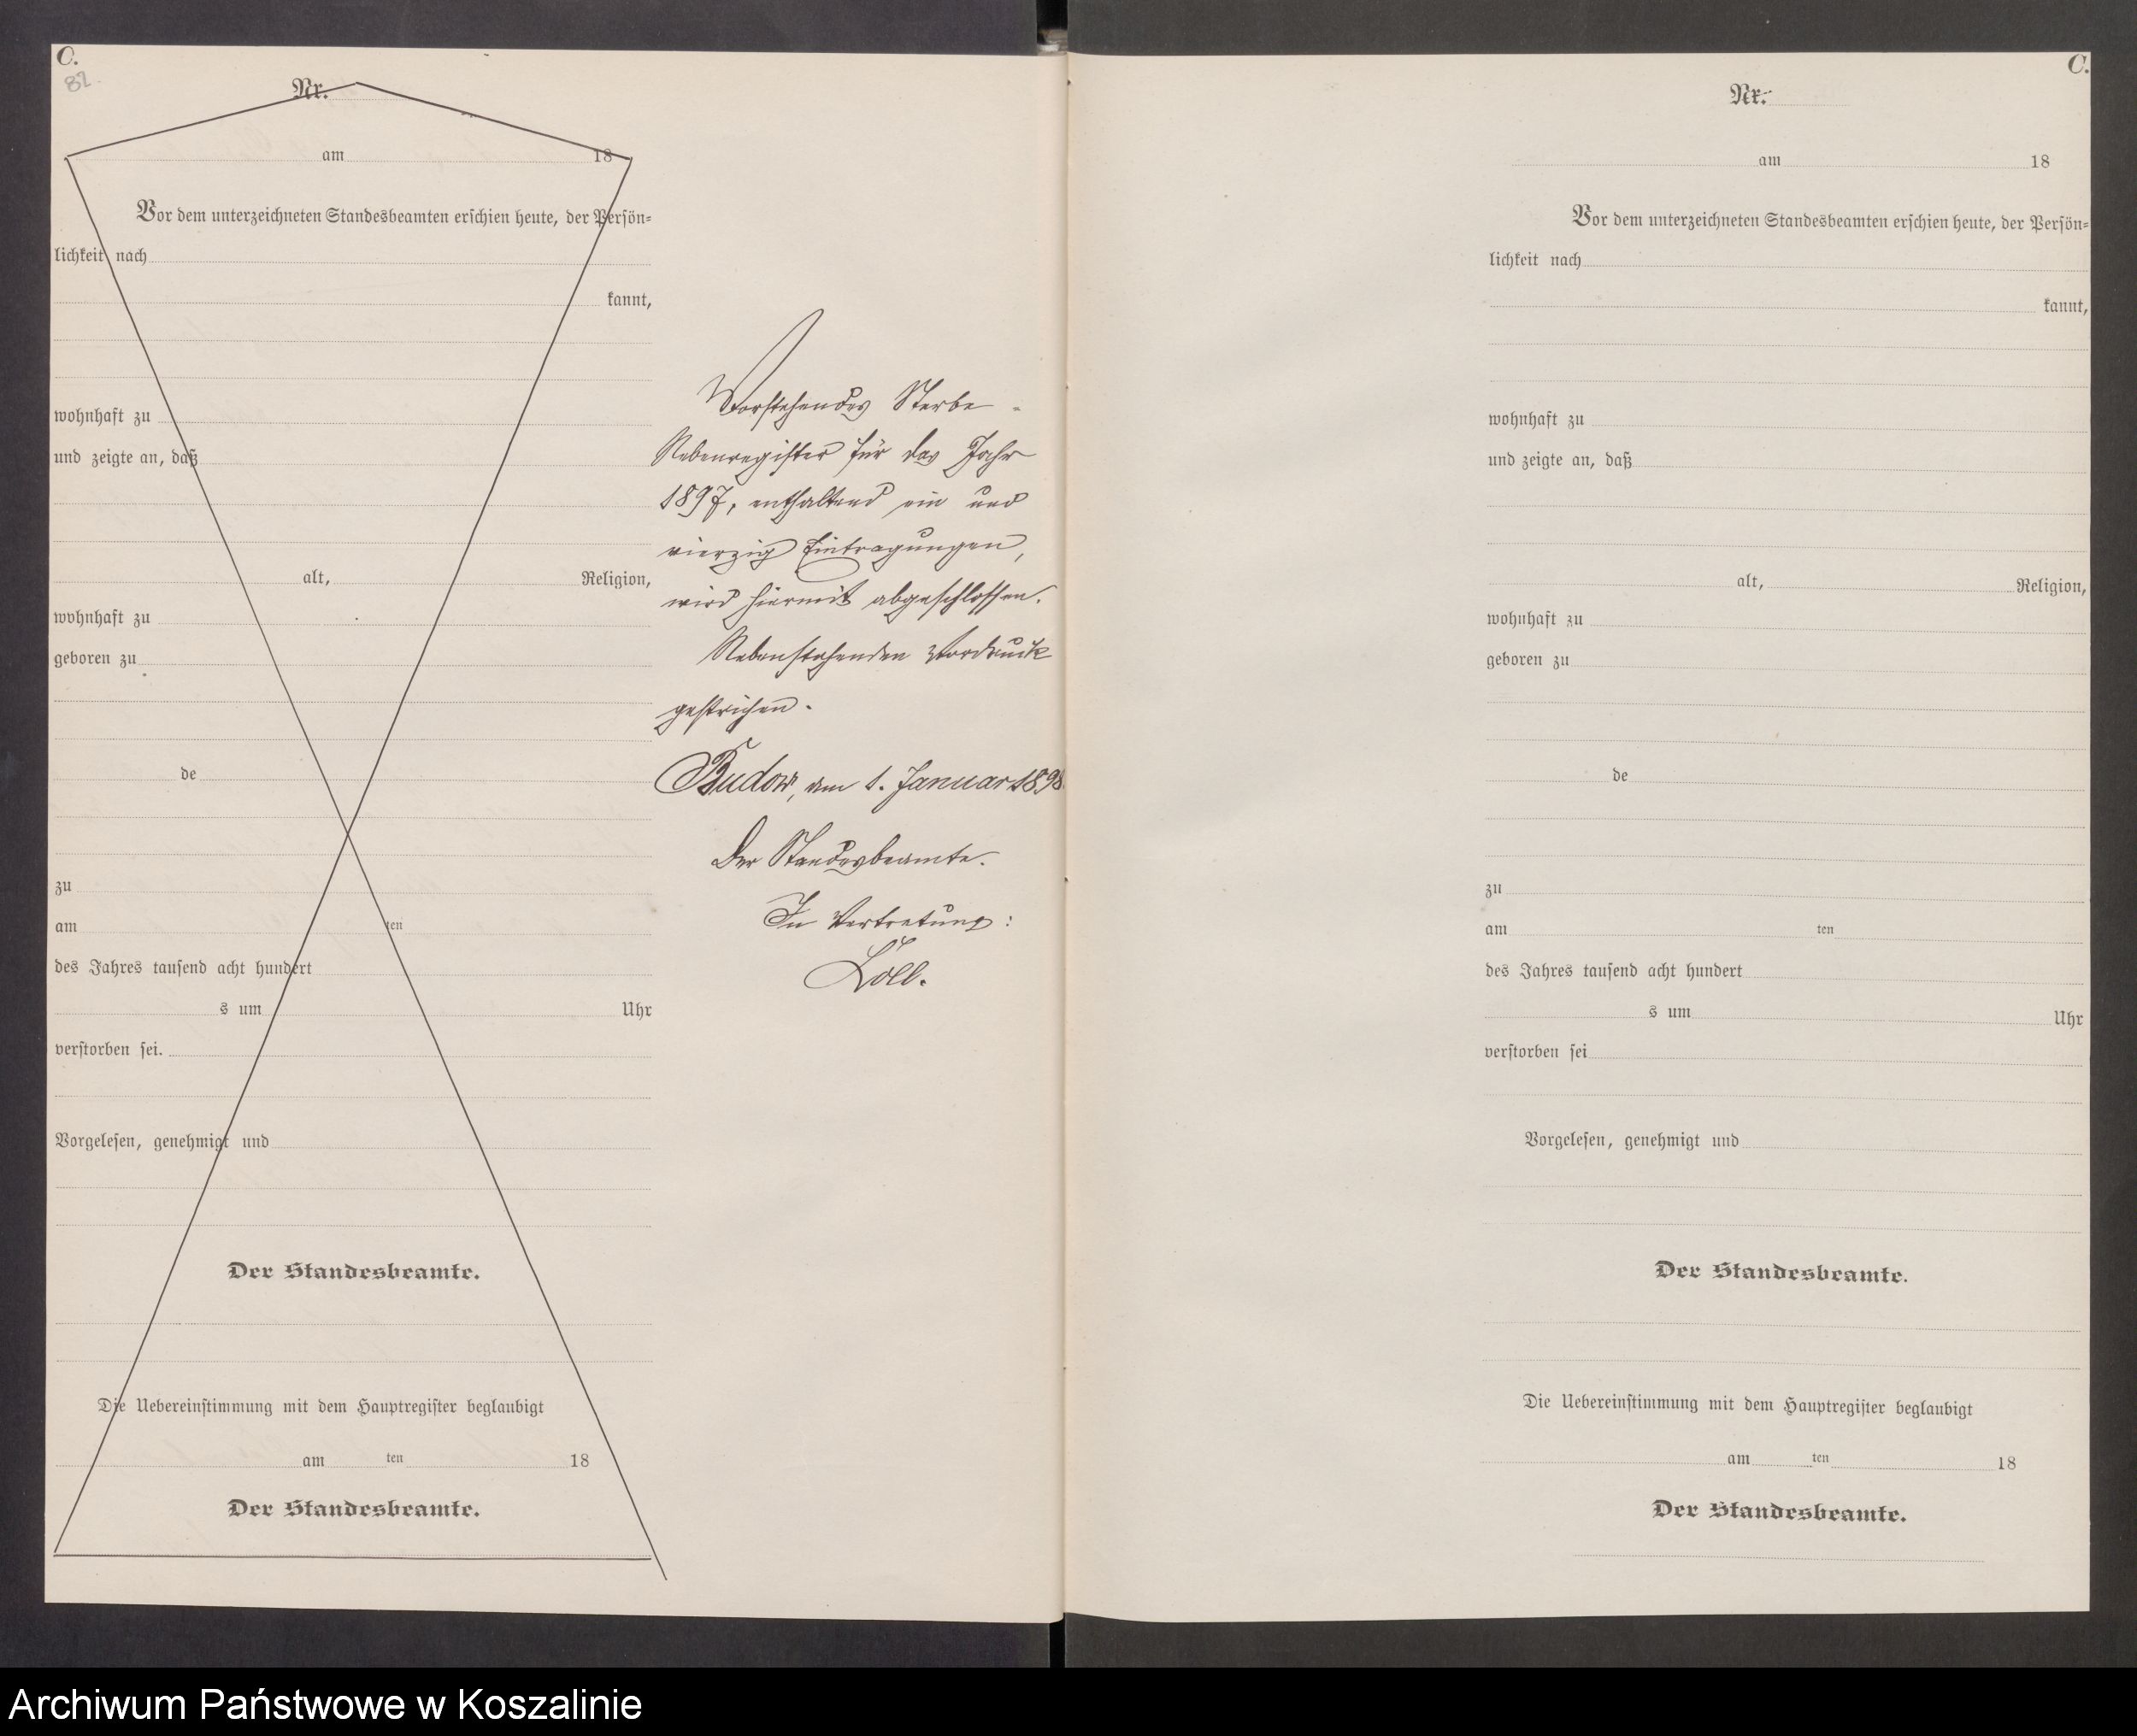 C.
82.
Nr.
am 18
Vor dem unterzeichneten Standesbeamten erschien heute, der Persön=
lichkeit nach
kannt,
wohnhaft zu
und zeigte an, daß
alt, Religion,
wohnhaft zu
geboren zu
de
zu
am ten
des Jahres tausend acht hundert
s um Uhr
verstorben sei.
Vorgelesen, genehmigt und
Der Standesbeamte.
Die Uebereinstimmung mit dem Hauptregister beglaubigt
am ten 18
Der Standesbeamte.
Vorstehendes Sterbe-
Nebenregister für das Jahr
1897, enthaltend ein und
vierzig Eintragungen,
wird hiermit abgeschlossen.
Nebenstehenden Vordruck
gestrichen.
Budow, am 1. Januar 1898
Der Standesbeamte.
In Vertretung:
Löll.
C.
Nr.
am 18
Vor dem unterzeichneten Standesbeamten erschien heute, der Persön=
lichkeit nach
kannt,
wohnhaft zu
und zeigte an, daß
alt, Religion,
wohnhaft zu
geboren zu
de
zu
am ten
des Jahres tausend acht hundert
s um Uhr
verstorben sei
Vorgelesen, genehmigt und
Der Standesbeamte.
Die Uebereinstimmung mit dem Hauptregister beglaubigt
am ten 18
Der Standesbeamte.
Archiwum Państwowe w Koszalinie